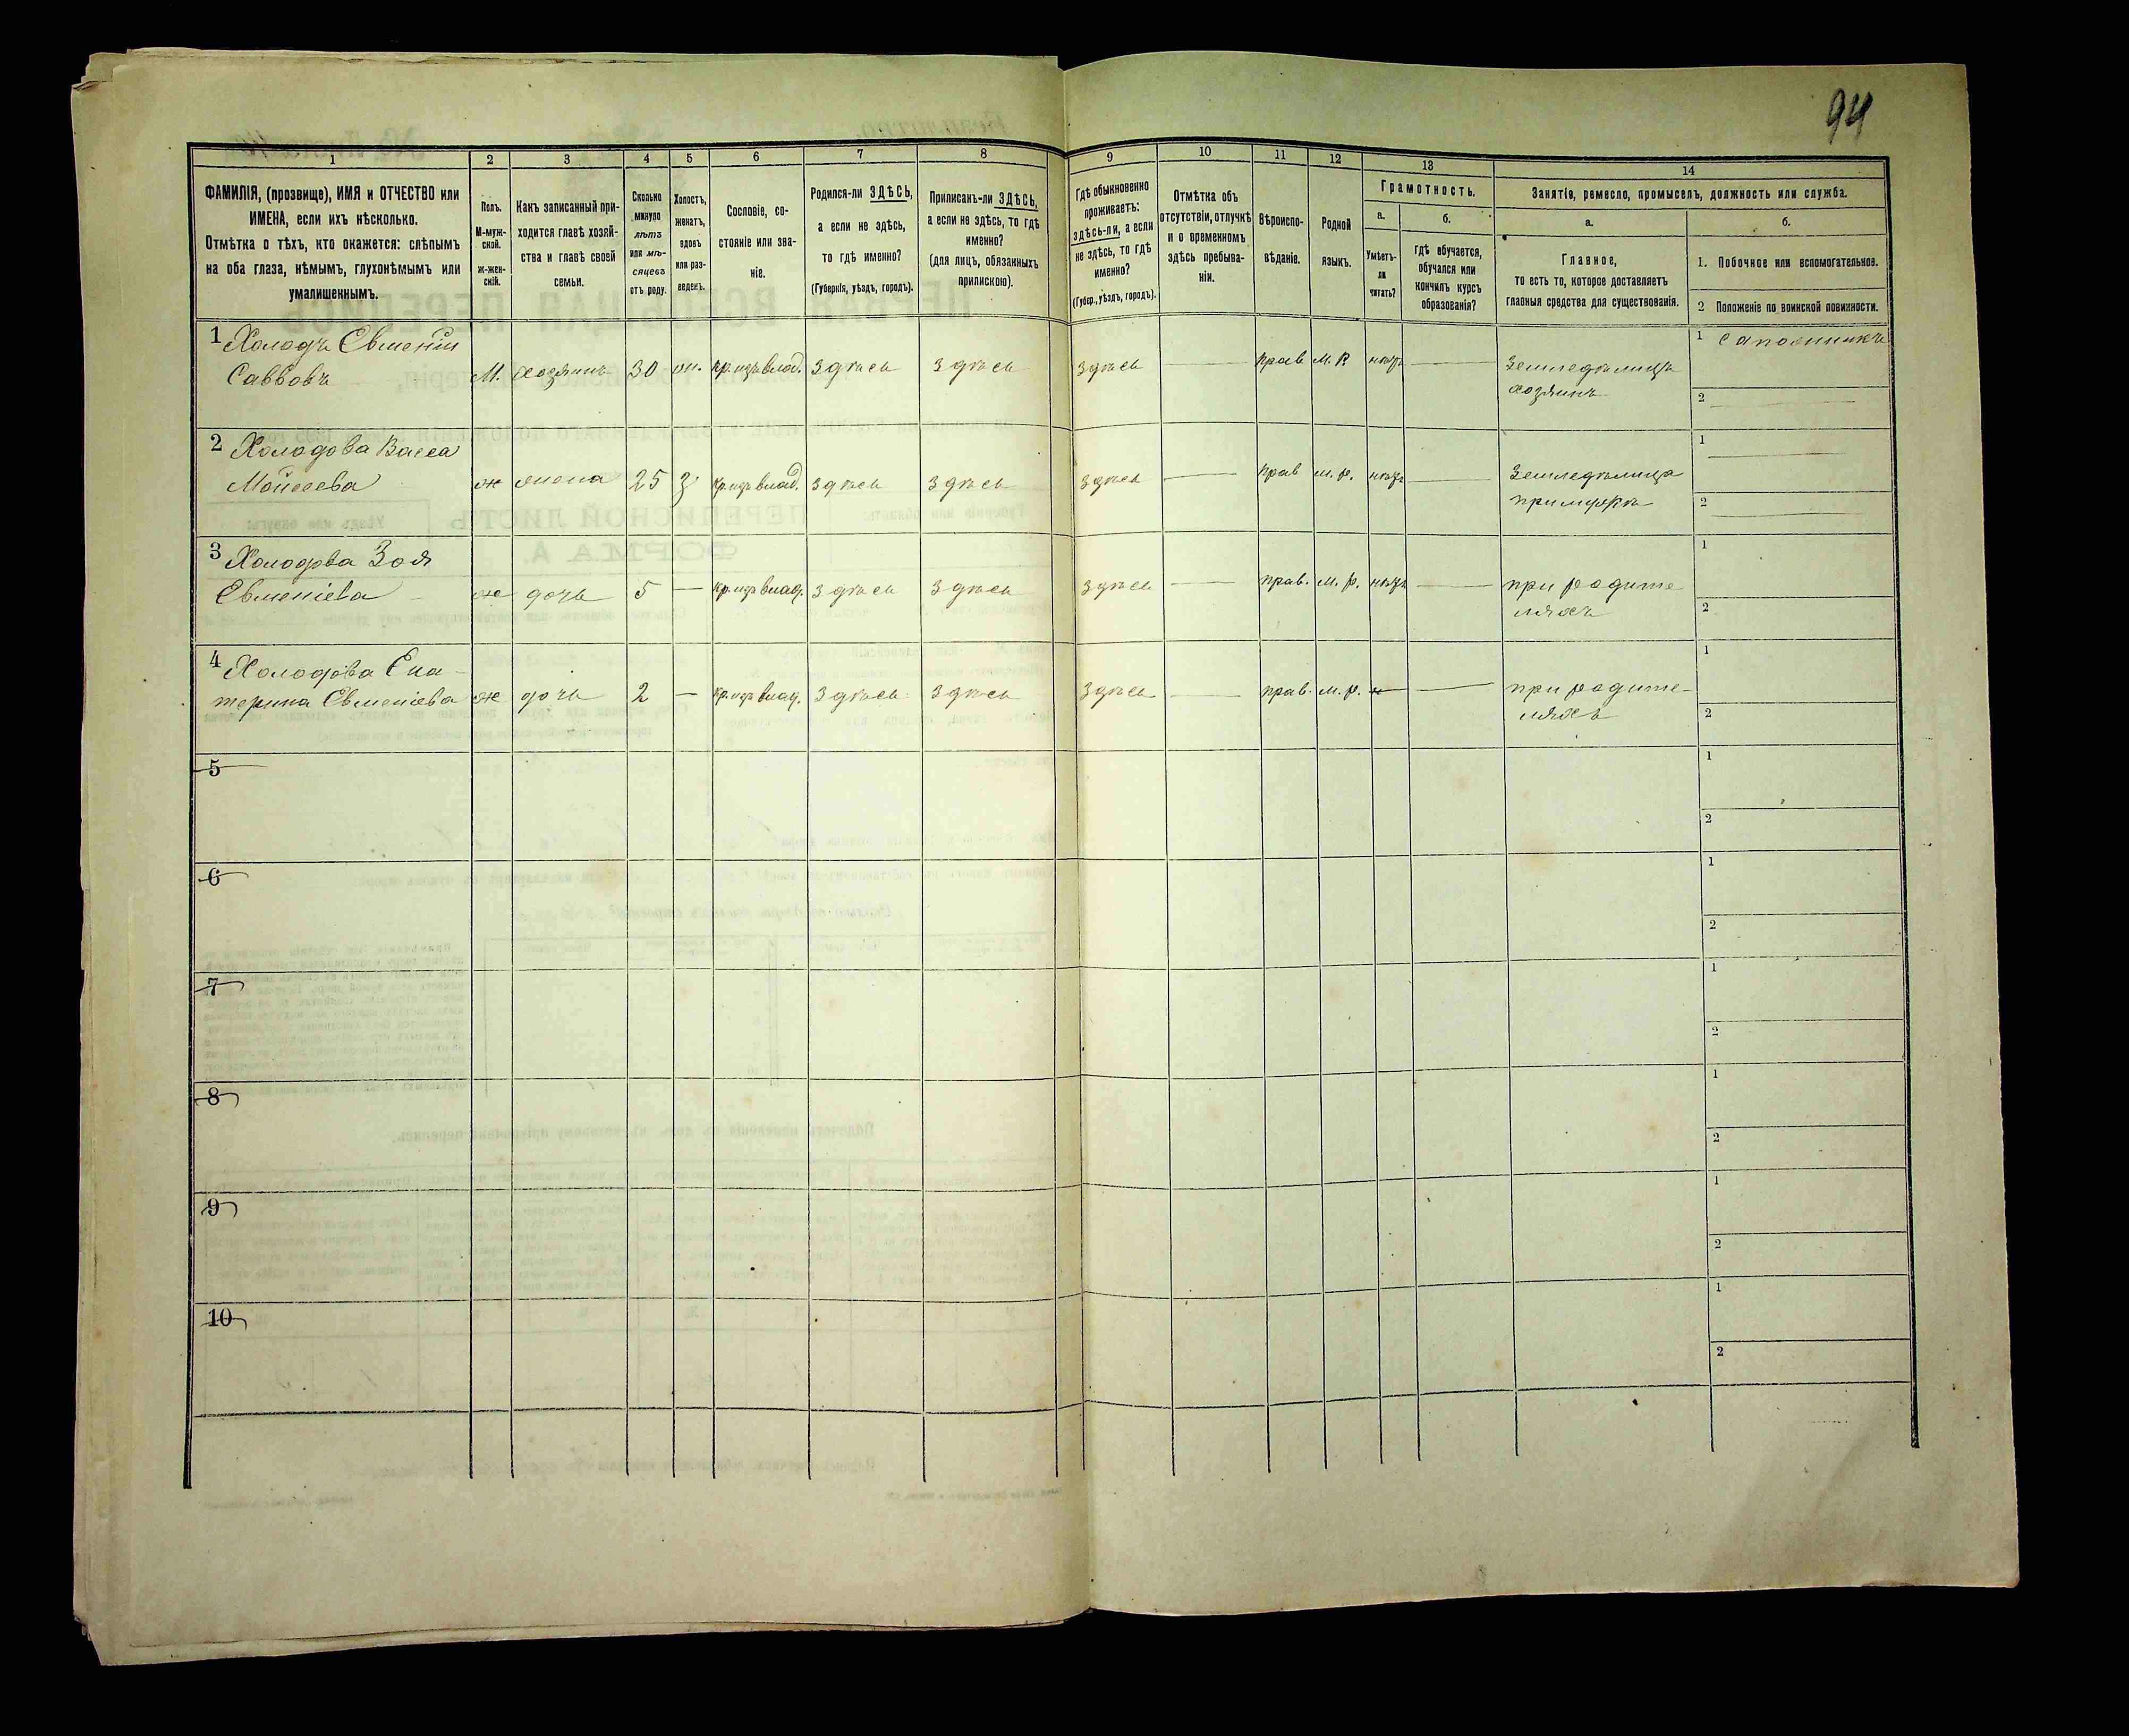 94
1 2 3 4 5 6 7 8 9 10 11 12 13 14
ФАМИЛІЯ, (прозвище), ИМЯ и ОТЧЕСТВО или
ИМЕНА, если ихъ нѣсколько.
Отмѣтка о тѣхъ, кто окажется: слѣпымъ
на оба глаза, нѣмымъ, глухонѣмымъ или
умалишеннымъ.
Полъ.
М-муж-
ской.
Ж-жен-
скій.
Какъ записанный при-
ходится главѣ хозяй-
ства и главѣ своей
семьи.
Сколько
минуло
лѣтъ
или мѣ-
сяцевъ
отъ роду.
Холостъ,
женатъ,
вдовъ
или раз-
веденъ.
Сословіе, со-
стояніе или зва-
ніе.
Родился-ли ЗДѢСЬ,
а если не здѣсь,
то гдѣ именно?
(Губернія, уѣздъ, городъ).
Приписанъ-ли ЗДѢСЬ,
а если не здѣсь, то гдѣ
именно?
(для лицъ, обязанныхъ
припискою).
Гдѣ обыкновенно
проживаетъ:
здѣсь-ли, а если
не здѣсь, то гдѣ
именно?
(Губер., уѣздъ, городъ).
Отмѣтка объ
отсутствіи, отлучкѣ
и о временномъ
здѣсь пребыва-
ніи.
Вѣроиспо-
вѣданіе.
Родной
языкъ.
Грамотность.
а.
Умѣетъ-
ли
читать?
б.
Гдѣ обучается,
обучался или
кончилъ курсъ
образованія?
Занятія, ремесло, промыселъ, должность или служба.
а.
Главное,
то есть то, которое доставляетъ
главныя средства для существованія.
б.
1. Побочное или вспомогательное.
2 Положеніе по воинской повинности.
1 Холодъ Евменій
Саввовъ М. хозяинъ 30 ж. кр. изъ влад. здѣсь здѣсь здѣсь — прав М. Р нѣтъ — Земледѣлецъ
хозяинъ
1 Сапожникъ
2 —
2 Холодова Васса
Мойсеева ж жена 25 З кр. изъ влад. здѣсь здѣсь здѣсь — прав м. р. нѣтъ — Земледѣлица
при мужѣ
1 —
2 —
3 Холодова Зоя
Евменіева ж дочь 5 — кр. изъ влад. здѣсь здѣсь здѣсь — прав. м. р. нѣтъ — при родите
ляхъ
1
2
4 Холодова Ека-
терина Евменіева ж дочь 2 — кр. изъ влад. здѣсь здѣсь здѣсь — прав. м. р. — при родите-
ляхъ
1
2
5 1
2
6 1
2
7 1
2
8 1
2
9 1
2
10 1
2